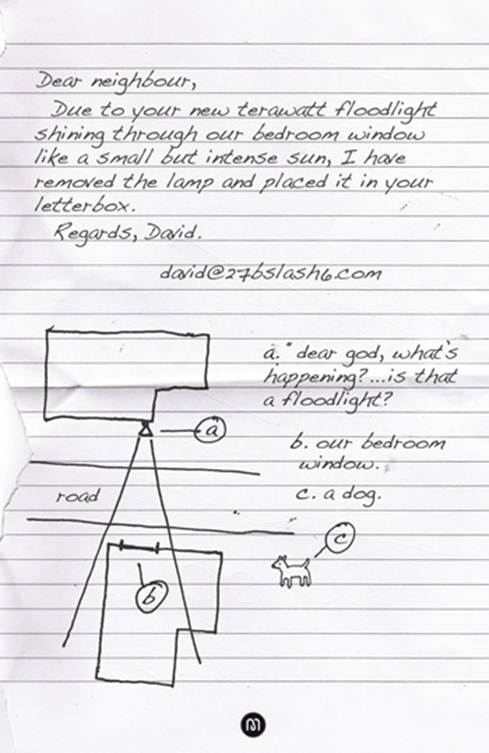 Dear neighbour,
Due to your new terawatt floodlight
shining through our bedroom window
like a small but intense sun, I have
removed the lamp and placed it in your
letterbox.
Regards, David.
david@27bslash6.com
a. "dear god, what's
happening?...is that
a floodlight?
b. our bedroom
window.
c. a dog.
a
road
b
c